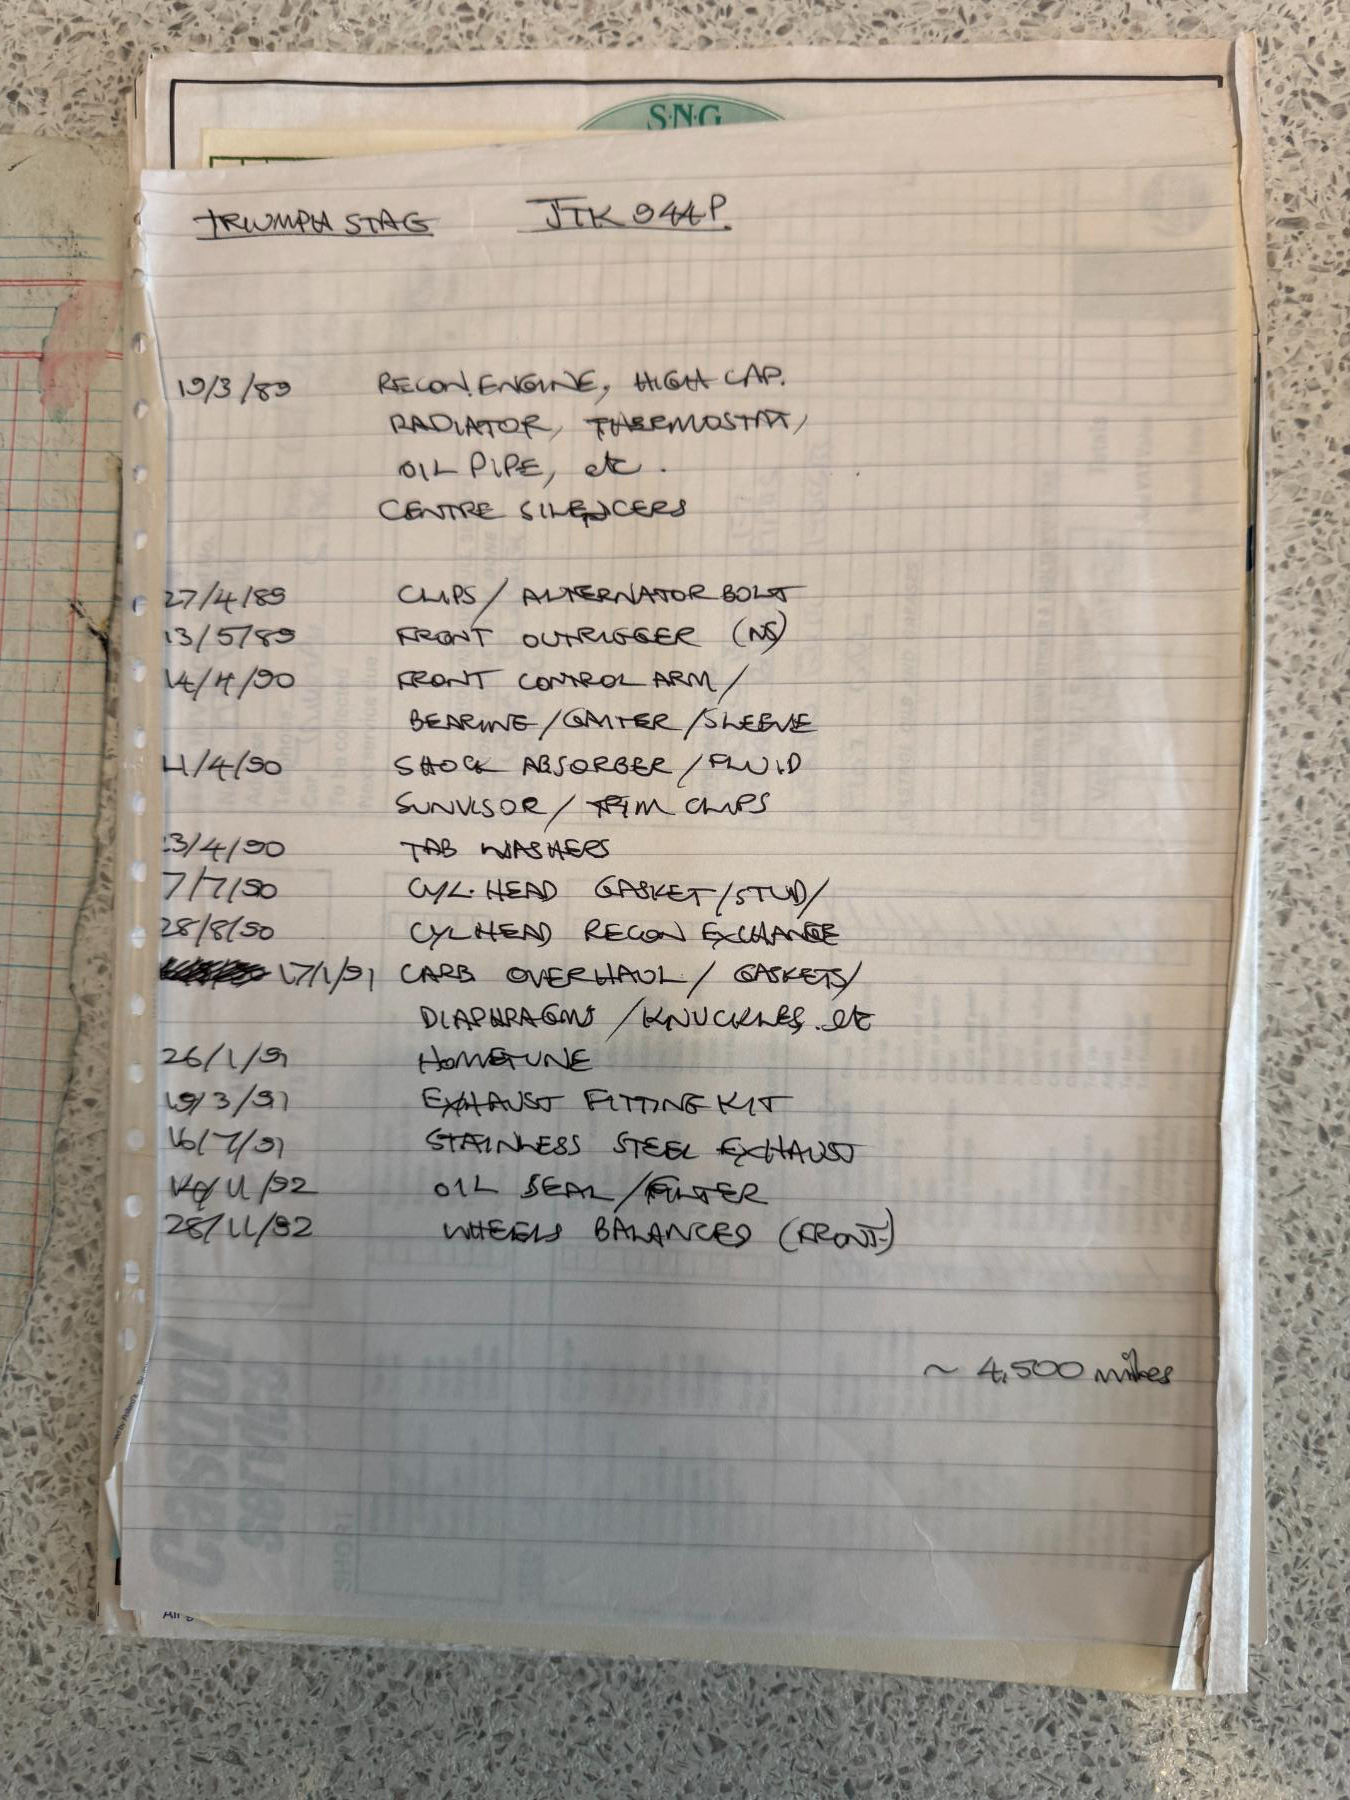 S.N.G
TRIUMPH STAG JTK 944P.
19/3/89 RECON. ENGINE, HIGH CAP.
RADIATOR, THERMOSTAT,
OIL PIPE, etc.
CENTRE SILENCERS
27/4/89 CLIPS / ALTERNATOR BOLT
13/5/89 FRONT OUTRIGGER (NS)
14/4/90 FRONT CONTROL ARM /
BEARING / GAITER / SLEEVE
/4/90 SHOCK ABSORBER / FLUID
SUNVISOR / TRIM CLIPS
23/4/90 TAB WASHERS
7/7/90 CYL. HEAD GASKET / STUD /
28/8/90 CYL HEAD RECON EXCHANGE
17/1/91 CARB OVERHAUL / GASKETS /
DIAPHRAGMS / KNUCKLES. etc
26/1/91 HOMETUNE
19/3/91 EXHAUST FITTING KIT
16/7/91 STAINLESS STEEL EXHAUST
/11/92 OIL SEAL / FILTER
28/11/92 WHEELS BALANCED (FRONT)
~ 4,500 miles